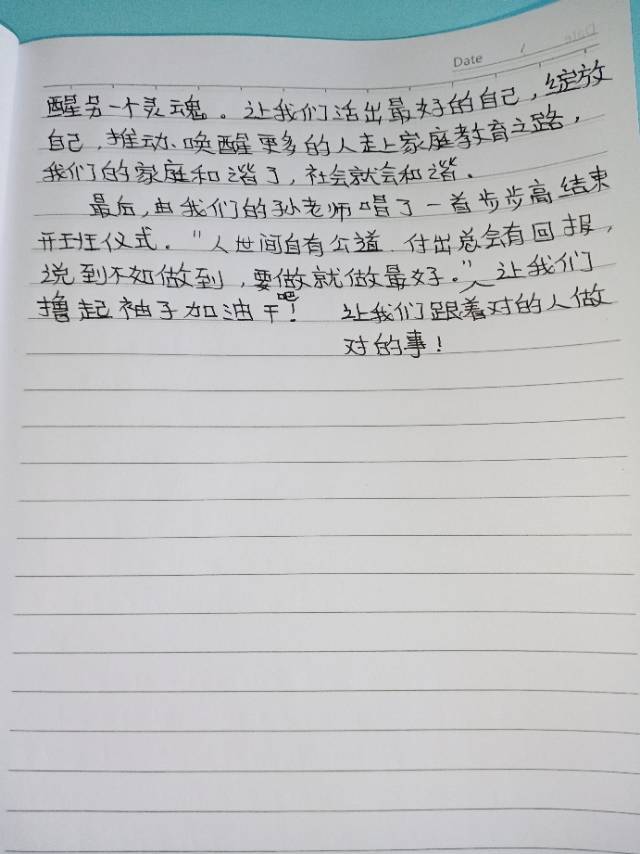 Date /
醒另一个灵魂。让我们活出最好的自己，绽放
自己，推动、唤醒更多的人走上家庭教育之路，
我们的家庭和谐了，社会就会和谐。
最后，由我们的孙老师唱了一首步步高结束
开班仪式。“人世间自有公道，付出总会有回报，
说到不如做到，要做就做最好。”让我们
撸起袖子加油干吧！ 让我们跟着对的人做
对的事！